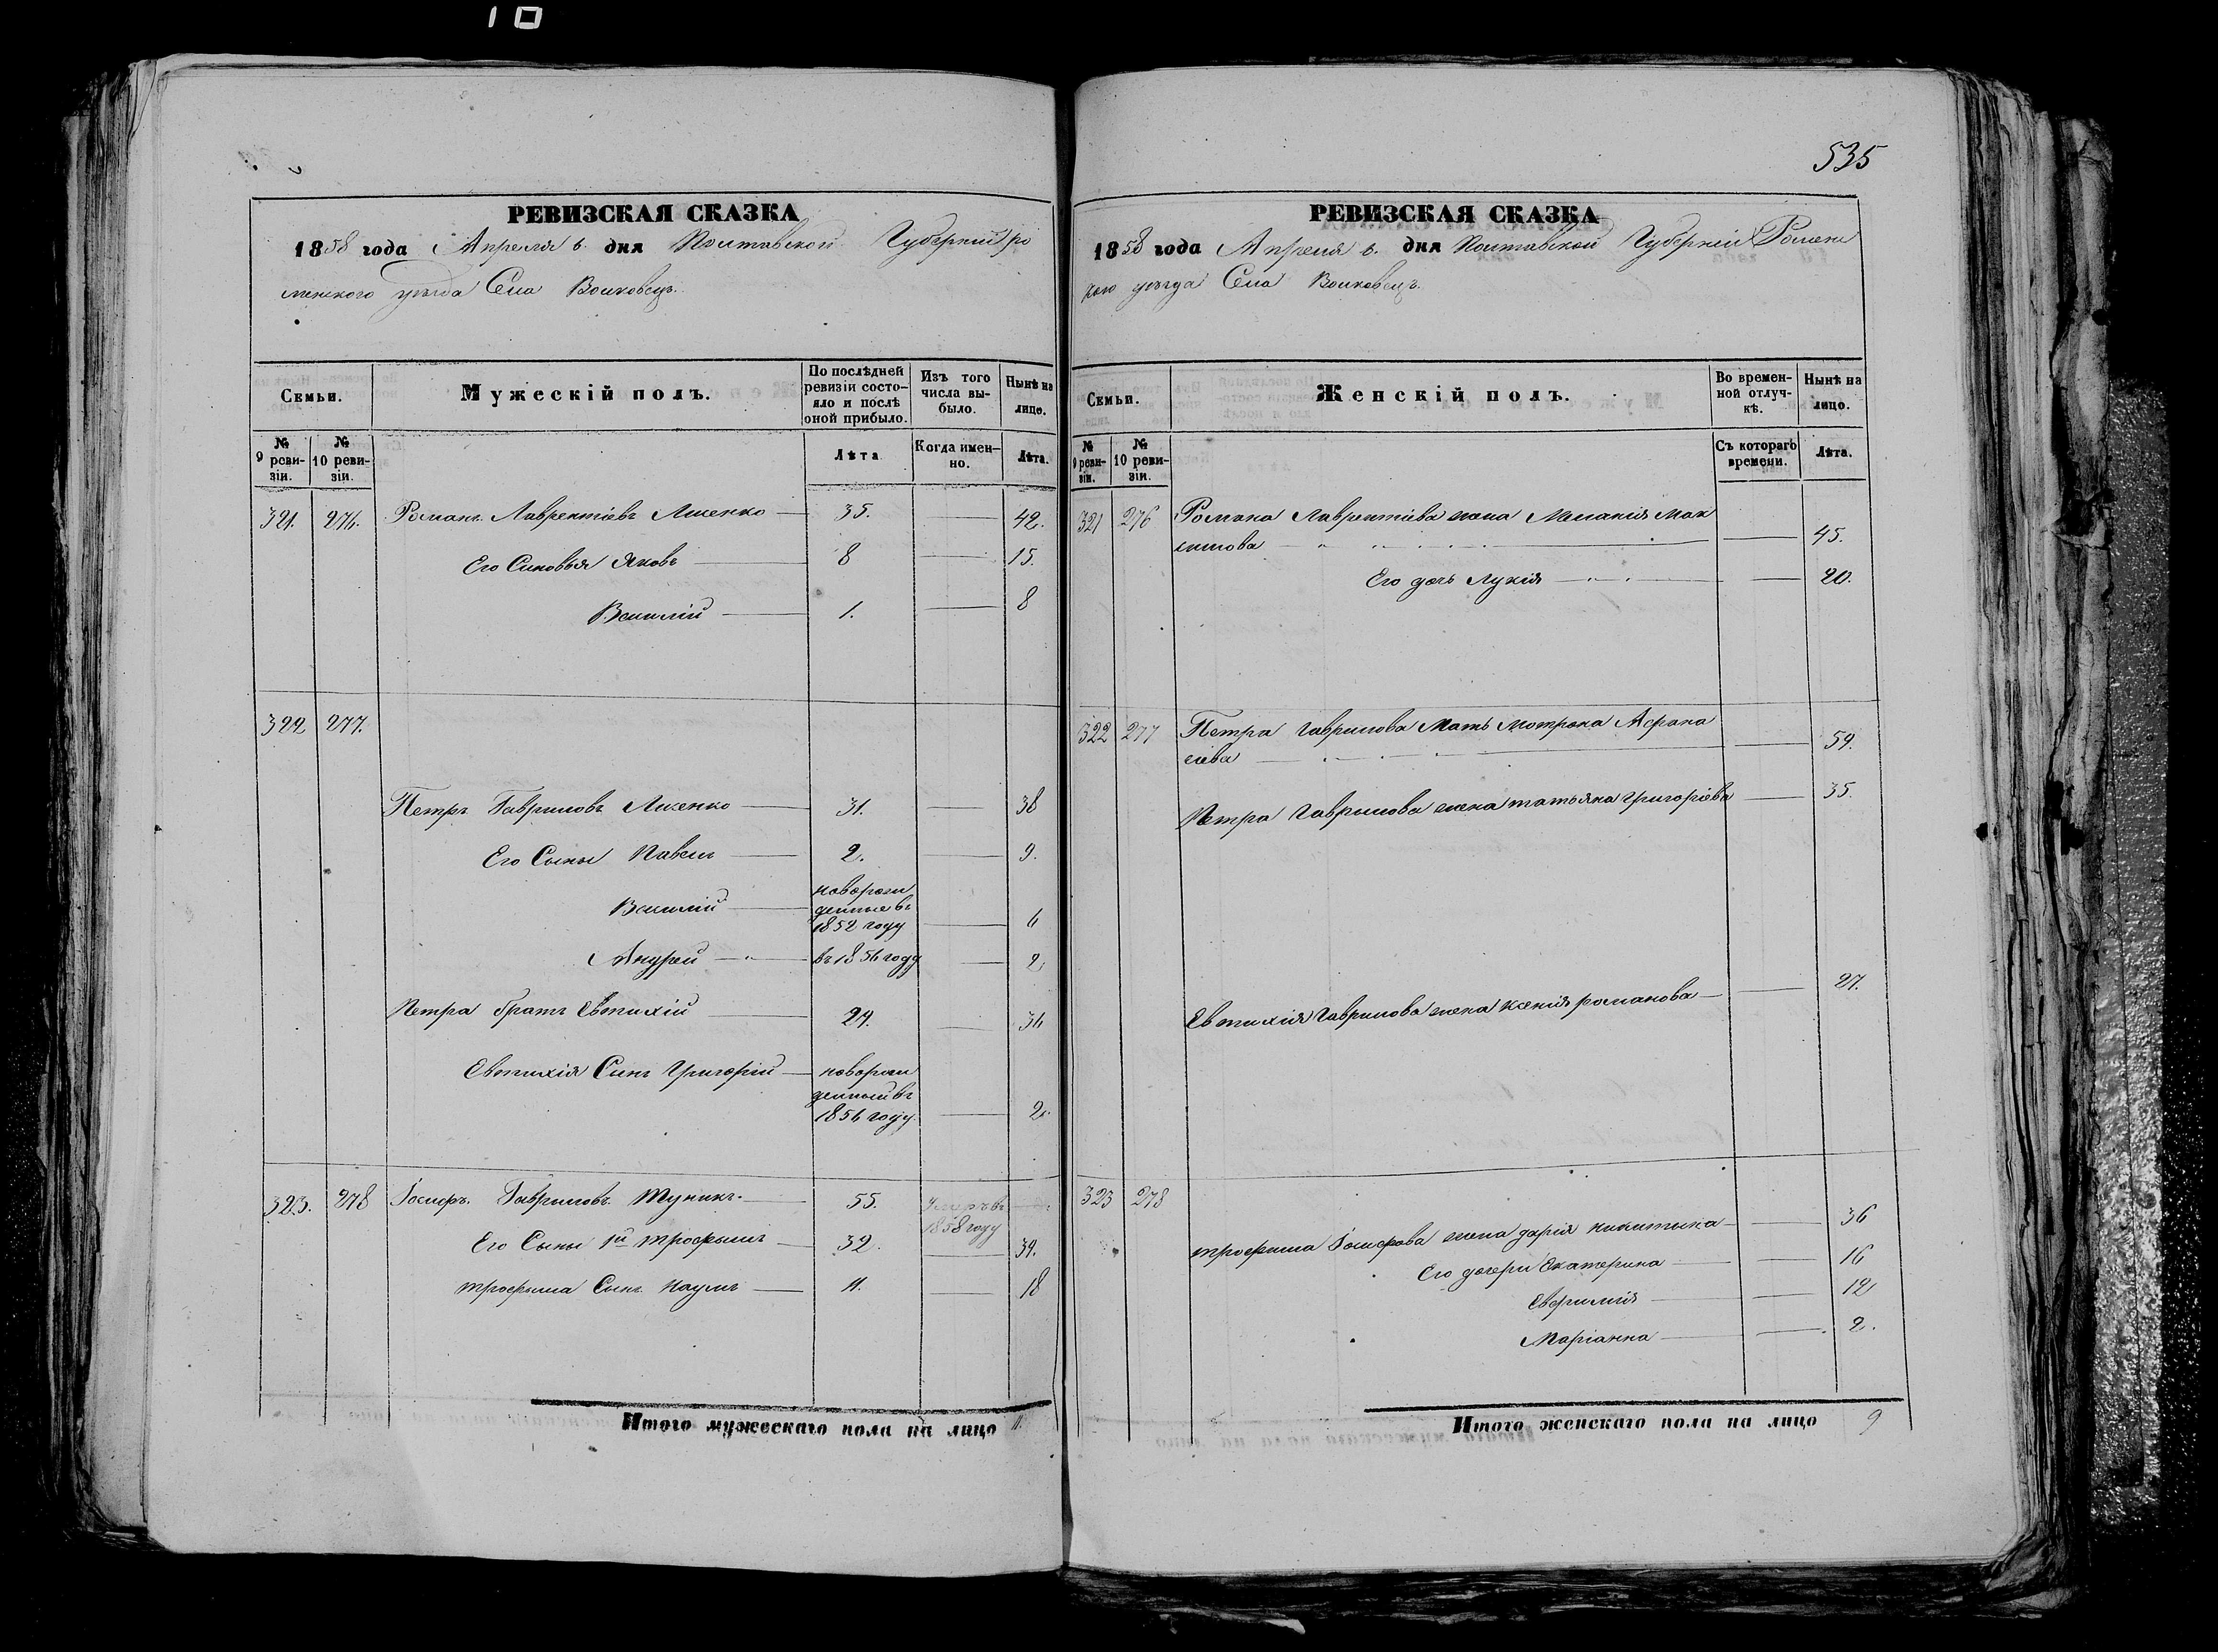 10
535
РЕВИЗСКАЯ СКАЗКА
1858 года Апреля 6. дня Полтавской Губерніи ро
менского уѣзда Села Волковецъ.
Семьи.
Мужескій полъ.
По послѣдней ревизіи состояло и послѣ оной прибыло.
Изъ того числа выбыло.
Нынѣ на лицо.
№ 9 ревизіи.
№ 10 ревизіи.
Лѣта
Когда именно.
Лѣта.
321. 276. Романъ Лаврентіевъ Лисенко 35. 42.
Его Сыновья Яковъ 8 15.
Василій 1. 8
322 277.
Петръ Гавриловъ Лисенко 31. 38
Его Сыны Павелъ 2. 9.
Василій новорож
денные въ
1852 году 6
Андрей въ 1856 году 2
Петра братъ Евтихій 29. 36
Евтихія Сынъ Григорій новорож
денный въ
1856 году. 2.
323. 278 Іосифъ Гавриловъ 55. Умеръ въ
1858 году
Его Сыны 1й Трофымъ 32. 39.
Трофыма Сынъ Наумъ 11. 18
Итого мужескаго пола на лицо 11.
РЕВИЗСКАЯ СКАЗКА
1858 года Апреля 6. дня Полтавской Губерніи Ромен
ского уѣзда Села Волковецъ.
Семьи.
Женскій полъ.
Во временной отлучкѣ.
Нынѣ на лицо.
№ 9 ревизіи.
№ 10 ревизіи.
Съ котораго времени.
Лѣта.
321 276 Романа Лаврентіева жена Меланія Мак
симова 45.
Его дочь Лукія 20.
322 277 Петра Гаврилова Мать Мотрона Афана
сіева 59.
Петра Гаврылова жена татьяна Григоріева 35.
Евтихія Гаврилова жена Ксенія романова 27.
323 278
Трофыма Іосифова жена дарія Никитина 36
Его дочери Екатерина 16
Евфимія 12
Маріанна 2.
Итого женскаго пола на лицо 9